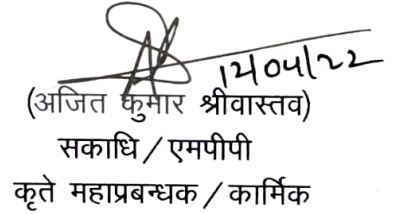 12/04/22
(अजित कुमार श्रीवास्तव)
सकाधि / एमपीपी
कृते महाप्रबन्धक / कार्मिक